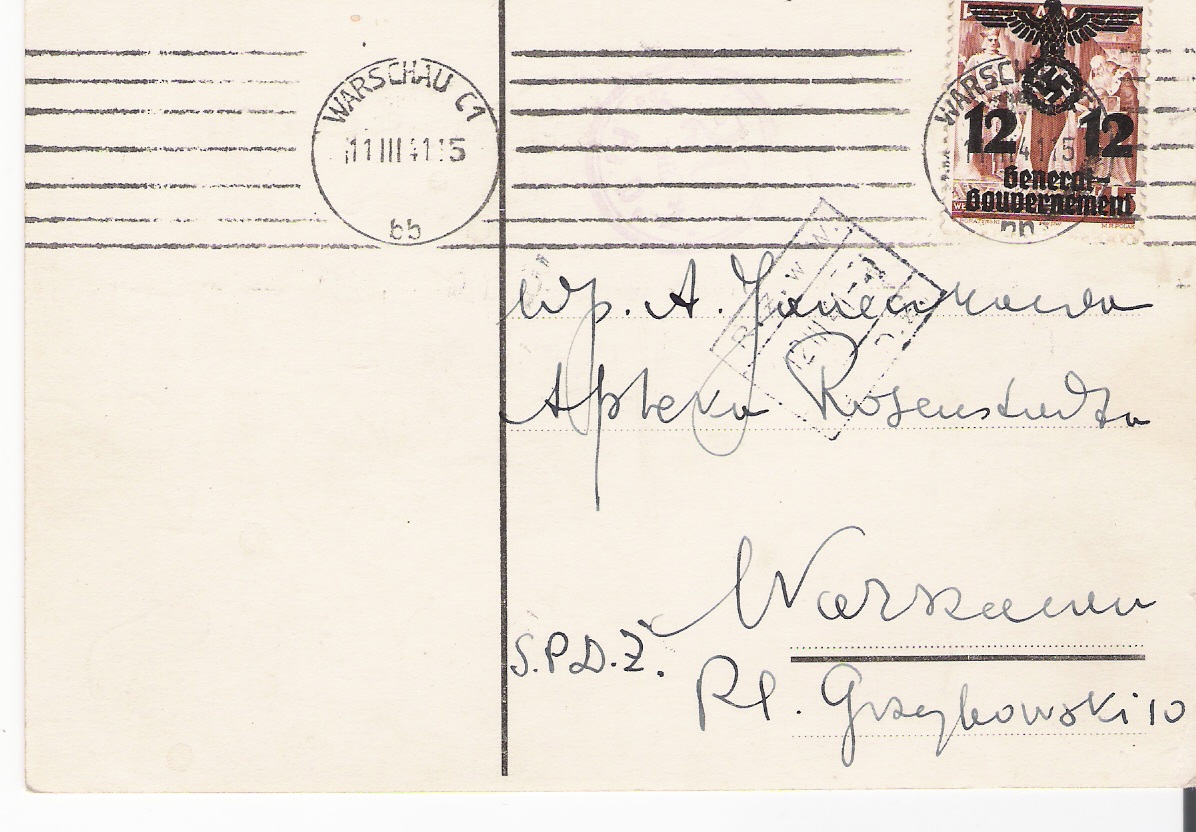 WARSCHAU C1
11 III 41 15
bb
WARSCHAU
12 12
General-
Gouvernement
R. Ż. W. W.
Wp. A. Janeczkowa
Apteka Rosenstadta
Warszawa
S.P.D.Ż.
Pl. Grzybowski 10